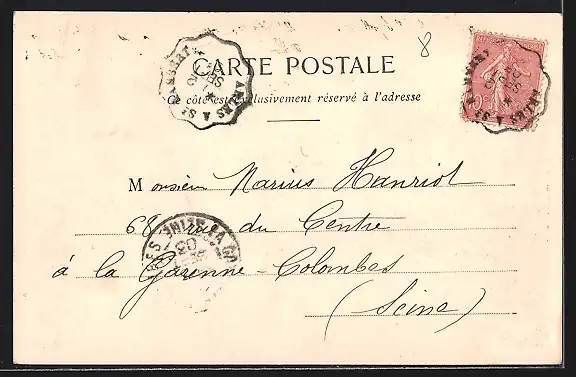 8
CARTE POSTALE
Ce côté est exclusivement réservé à l'adresse
Monsieur Marius Hanriot
68 rue du Centre
à la Garenne-Colombes
(Seine)